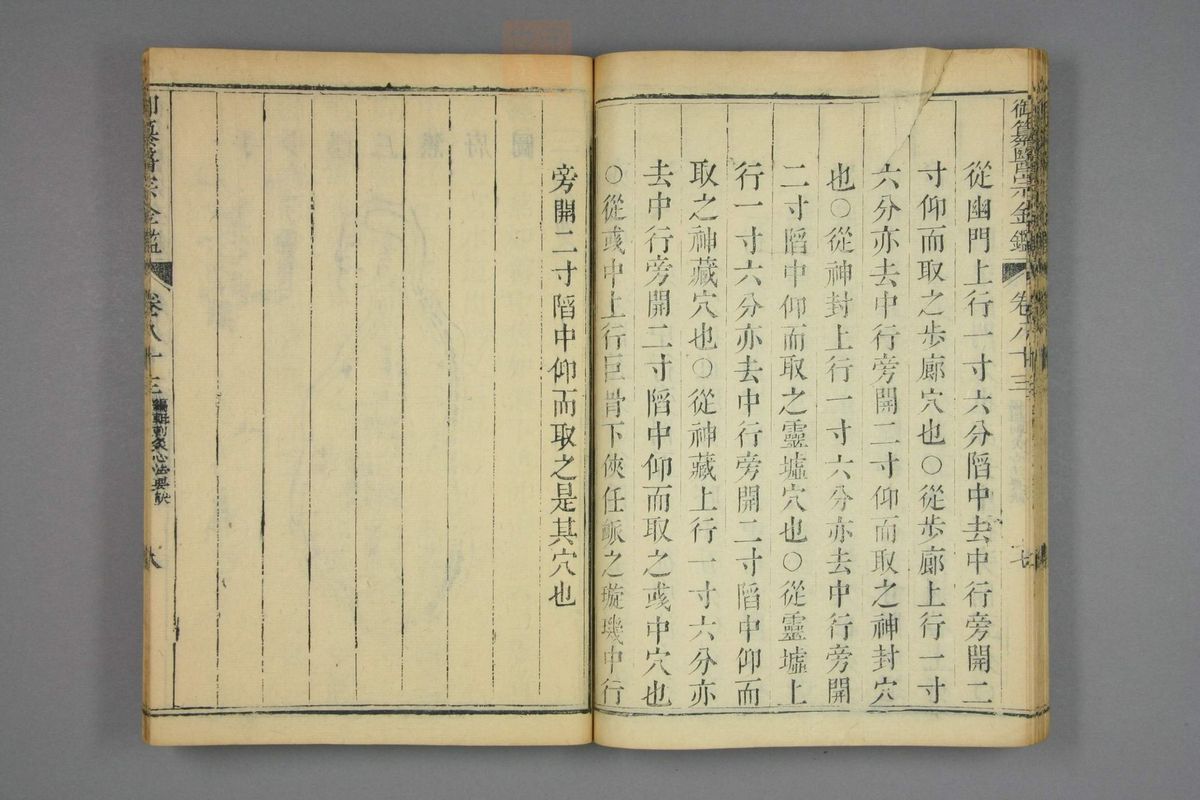 御纂醫宗金鑑 卷八十三 七
從幽門上行一寸六分陷中去中行旁開二
寸仰而取之步廊穴也○從步廊上行一寸
六分亦去中行旁開二寸仰而取之神封穴
也○從神封上行一寸六分亦去中行旁開
二寸陷中仰而取之靈墟穴也○從靈墟上
行一寸六分亦去中行旁開二寸陷中仰而
取之神藏穴也○從神藏上行一寸六分亦
去中行旁開二寸陷中仰而取之彧中穴也
○從彧中上行巨骨下俠任脈之璇璣中行
旁開二寸陷中仰而取之是其穴也
御纂醫宗金鑑 卷八十三 編輯刺灸心法要訣 八